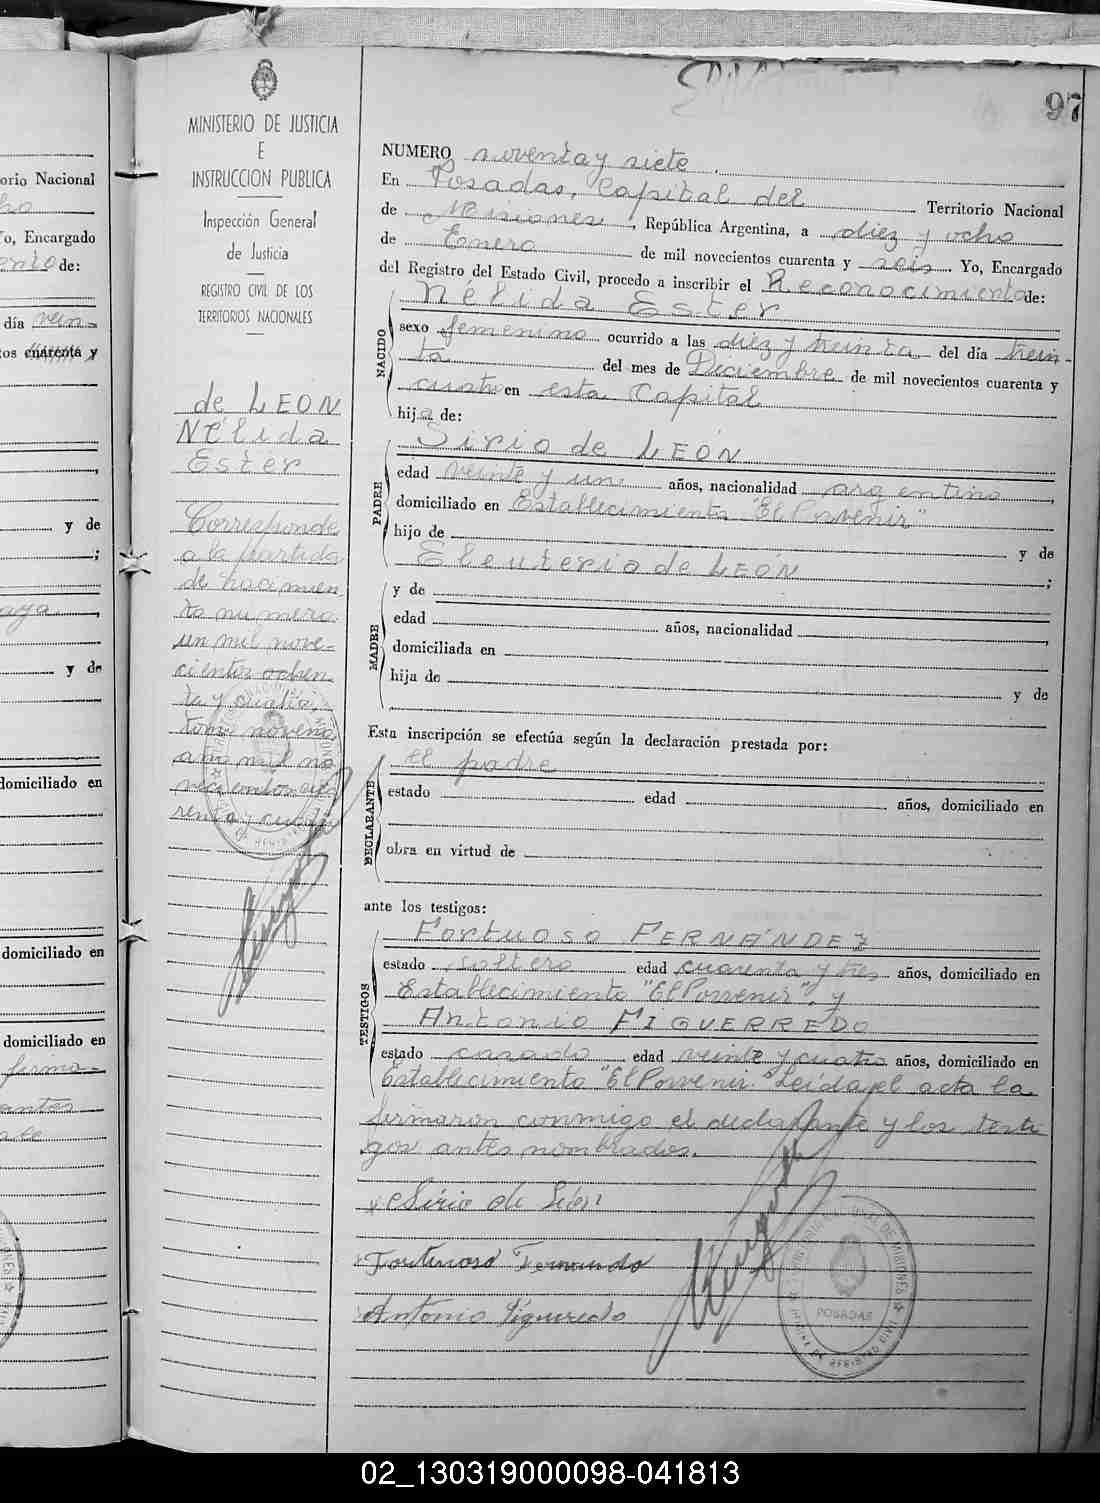 97
MINISTERIO DE JUSTICIA
E
INSTRUCCION PUBLICA
Inspección General
de Justicia
REGISTRO CIVIL DE LOS
TERRITORIOS NACIONALES
de LEON
Nélida
Ester
Corresponde
a la partida
de nacimien
to numero
un mil nove-
cientos ochen
ta y cuatro,
tomo noveno
ano mil no-
vecientos cua
renta y cuatro
NUMERO noventa y siete
En Posadas, Capital del Territorio Nacional
de Misiones, República Argentina, a diez y ocho
de Enero de mil novecientos cuarenta y seis. Yo, Encargado
del Registro del Estado Civil, procedo a inscribir el Reconocimiento de:
NACIDO
Nélida Ester
sexo femenino ocurrido a las diez y treinta del día trein-
ta del mes de Diciembre de mil novecientos cuarenta y
cuatro en esta Capital
hija de:
PADRE
Sirio de LEÓN
edad veinte y un años, nacionalidad argentino,
domiciliado en Establecimiento "El Porvenir"
hijo de y de
Eleuteria de LEÓN ;
MADRE
y de
edad años, nacionalidad ,
domiciliada en
hija de y de
Esta inscripción se efectúa según la declaración prestada por:
DECLARANTE
el padre
estado edad años, domiciliado en
obra en virtud de
ante los testigos:
TESTIGOS
Fortuoso FERNÁNDEZ
estado soltero edad cuarenta y tres años, domiciliado en
Establecimiento "El Porvenir", y
Antonio FIGUERREDO
estado casado edad veinte y cuatro años, domiciliado en
Establecimiento "El Porvenir" Leída el acta la
firmaron conmigo el declarante y los testi
gos antes nombrados.
Sirio de León
Fortunoso Fernando
Antonio Figueredo
POSADAS
orio Nacional
ho
Yo, Encargado
ento de:
día vein-
tos cuarenta y
y de
;
aya,
y de
domiciliado en
domiciliado en
domiciliado en
firma-
antes
02_130319000098-041813